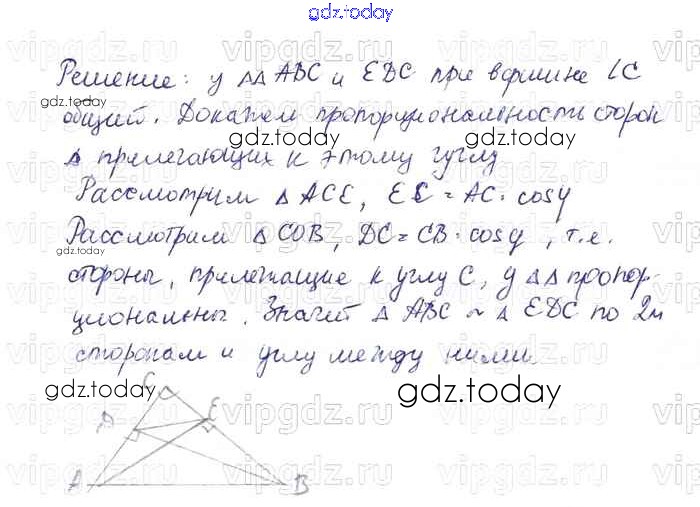 gdz.today
Решение: у ΔΔ ABC и EDC при вершине ∠C
общий. Докажем пропорциональность сторон
Δ прилегающих к этому углу
Рассмотрим Δ ACE, EC = AC · cos γ
Рассмотрим Δ CDB, DC = CB · cos γ, т.е.
стороны, прилежащие к углу C, у ΔΔ пропор-
циональны. Значит Δ ABC ~ Δ EDC по 2м
сторонам и углу между ними.
gdz.today
gdz.today
gdz.today
gdz.today
gdz.today
gdz.today
vipgdz.ru
C
D E
A B